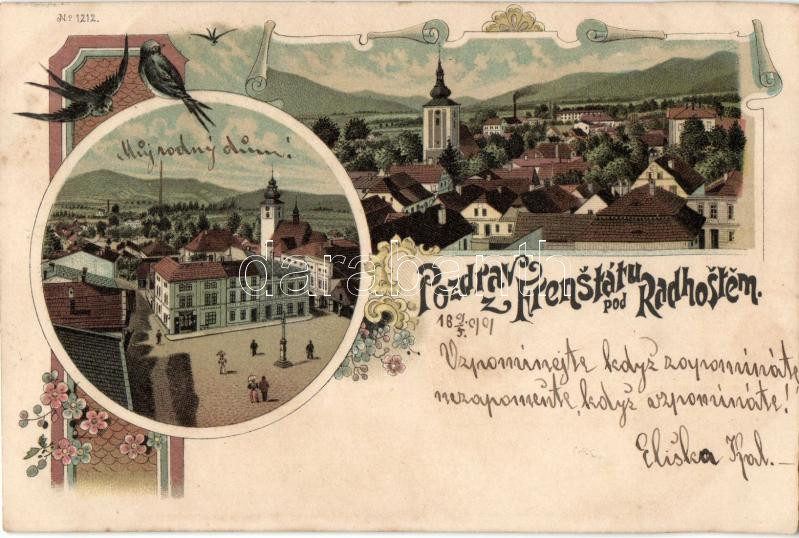 No. 1212.
Můj rodný dům!
Pozdrav z Frenštátu pod Radhoštěm.
18 9/5. 01
Vzpomínejte když zapomínáte,
nezapomente, když vzpomínáte!
Eliška Kal.
darabanth.com